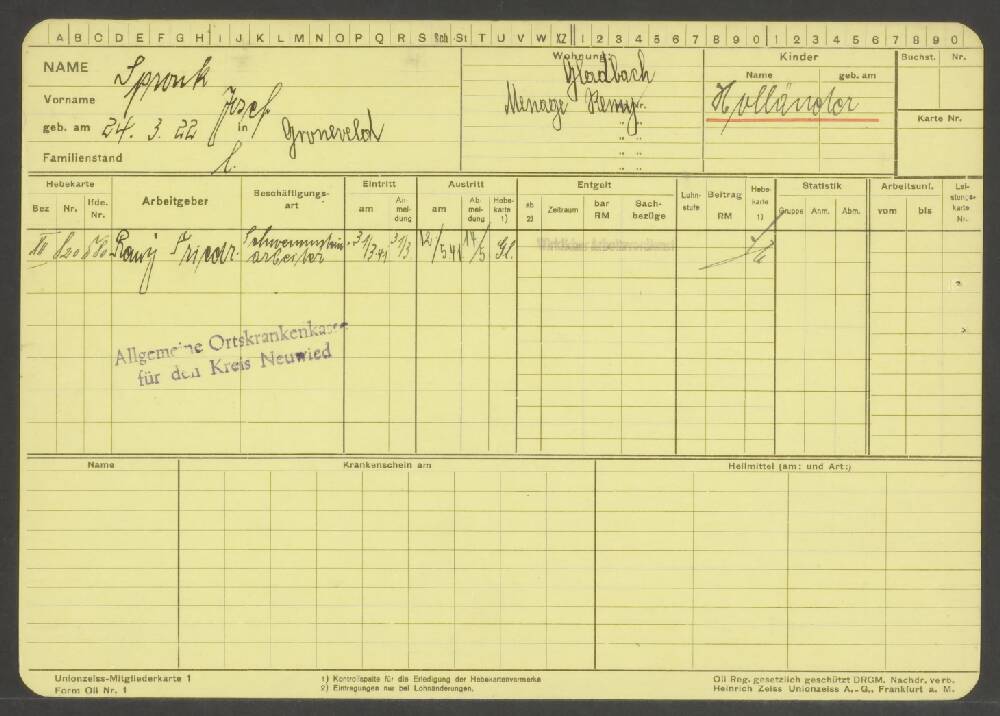 A B C D E F G H I J K L M N O P Q R S Sch St T U V W XZ 1 2 3 4 5 6 7 8 9 0 1 2 3 4 5 6 7 8 9 0
NAME Spronk
Vorname Josef
geb. am 24. 3. 22 in Groneveld
Familienstand l.
Wohnung:
Gladbach
Menage Remy
Kinder
Name geb. am
Holländer
Buchst. Nr.
Karte Nr.
Hebekarte
Bez Nr. lfde. Nr.
Arbeitgeber
Beschäftigungs-
art
Eintritt
am An-
mel-
dung
Austritt
am Ab-
mel-
dung
Hebe-
karte
1)
Entgelt
ab
2)
Zeitraum
bar
RM
Sach-
bezüge
Lohn-
stufe
Beitrag
RM
Hebe-
karte
1)
Statistik
Gruppe Anm. Abm.
Arbeitsunf.
vom bis
Lei-
stungs-
karte
Nr.
Remy Friedr. Schwemmstein 31/3.41 31/3 12/5 41 17/5 Gl.
arbeiter
Wirklicher Arbeitsverdienst
Allgemeine Ortskrankenkasse
für den Kreis Neuwied
Name Krankenschein am Heilmittel (am: und Art:)
Unionzeiss-Mitgliederkarte 1
Form Oli Nr. 1
1) Kontrollspalte für die Erledigung der Hebekartenvermerke
2) Eintragungen nur bei Lohnänderungen.
Oli Reg. gesetzlich geschützt DRGM. Nachdr. verb.
Heinrich Zeiss Unionzeiss A.-G., Frankfurt a. M.